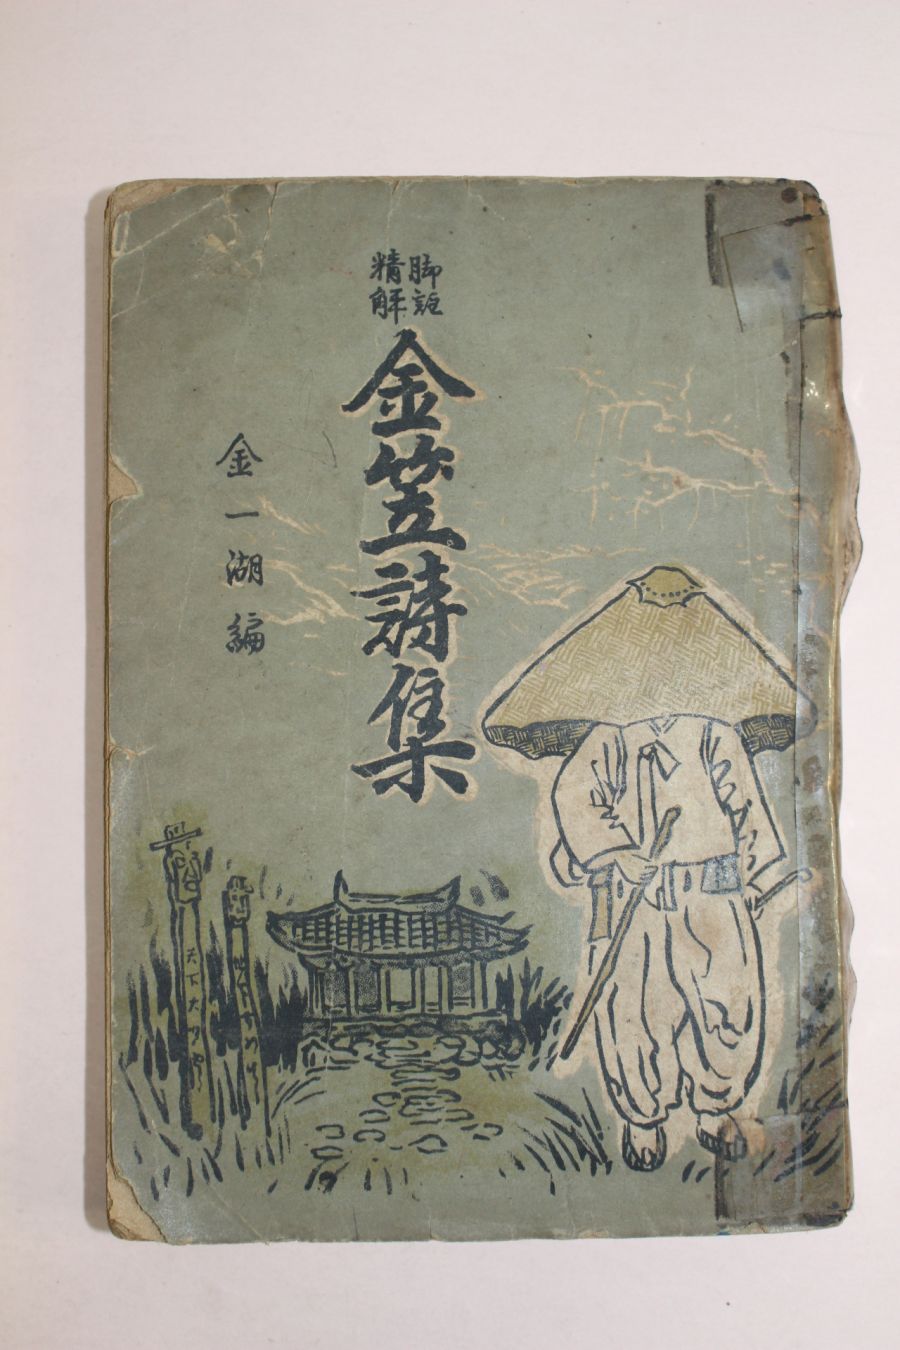 脚註
精解
金笠詩集
金一湖編
天下大